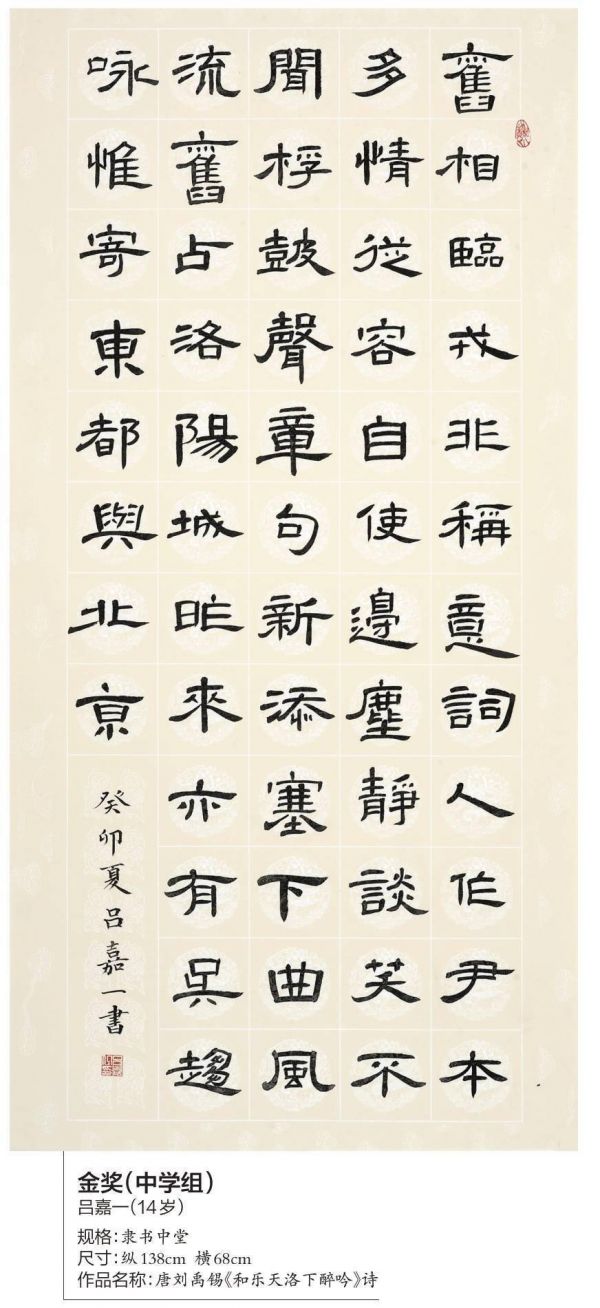 舊相臨戎非稱意詞人作尹本
多情從容自使邊塵靜談笑不
聞桴皷聲章句新添塞下曲風
流舊占洛陽城昨來亦有吳趨
咏惟寄東都與北亰
癸卯夏吕嘉一書
金奖（中学组）
吕嘉一（14岁）
规格：隶书中堂
尺寸：纵138cm 横68cm
作品名称：唐刘禹锡《和乐天洛下醉吟》诗